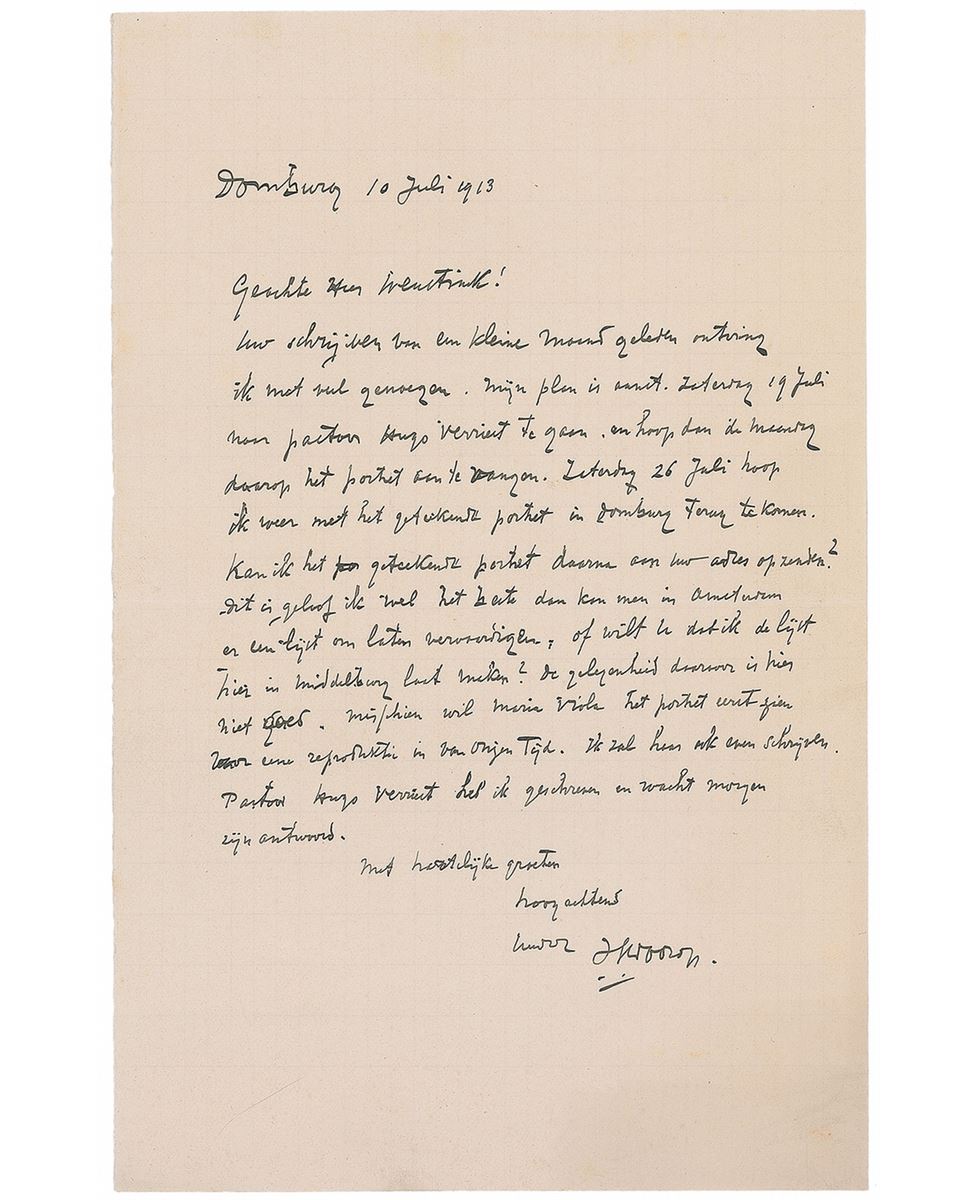 Domburg 10 Juli 1913
Geachte Heer
Uw schrijven van een kleine maand geleden ontving
ik met veel genoegen. Mijn plan is aanst. Zaterdag 19 Juli
naar pastoor Hugo Verriest te gaan. en hoop dan de Maandag
daarop het portret aan te vangen. Zaterdag 26 Juli hoop
ik weer met het geteekende portret in Domburg terug te komen.
Kan ik het geteekende portret daarna aan uw adres opzenden?
Dit is geloof ik wel het beste dan kan men in Amsterdam
er een lijst om laten vervaardigen, of wilt U dat ik de lijst
hier in Middelburg laat maken? De gelegenheid daarvoor is hier
niet goed. Misschien wil Maria Viola het portret eerst zien
voor eene reproduktie in van Onzen Tijd. Ik zal haar ook even schrijven.
Pastoor Hugo Verriest heb ik geschreven en wacht morgen
zijn antwoord.
Met hartelijke groeten
hoogachtend
JThToorop.